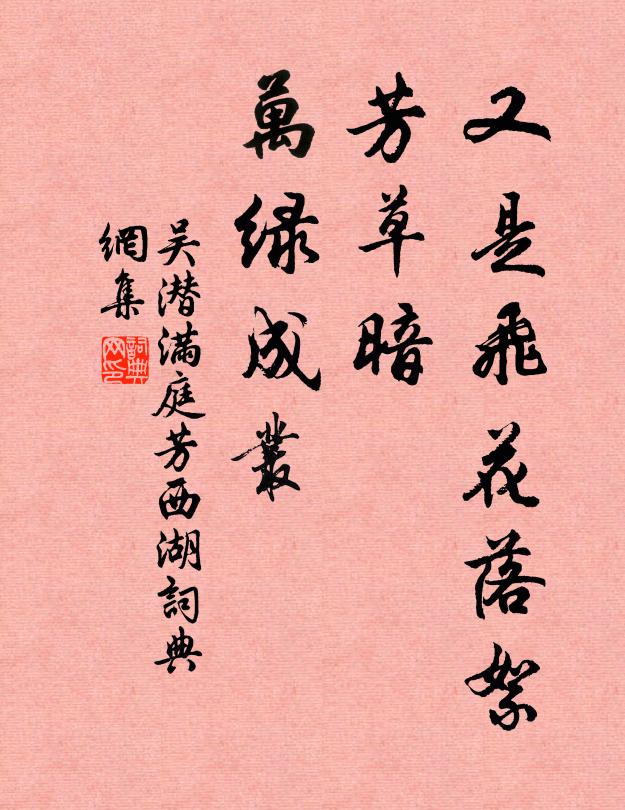 又是飛花落絮
芳草暗
萬綠成叢
吴潜滿庭芳西湖詞典
網集
詞典
网印